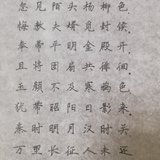 忽见陌头杨柳色
悔教夫婿觅封侯
奉帚平明金殿开
且将团扇共徘徊
玉颜不及寒鸦色
犹带昭阳日影来
秦时明月汉时关
万里长征人未还